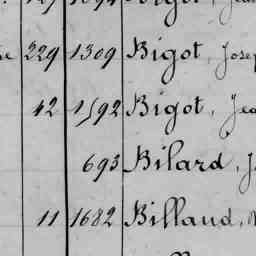 229 1309 Bigot, Josep
42 1592 Bigot, Jea
693 Bilard, J
11 1682 Billaud,